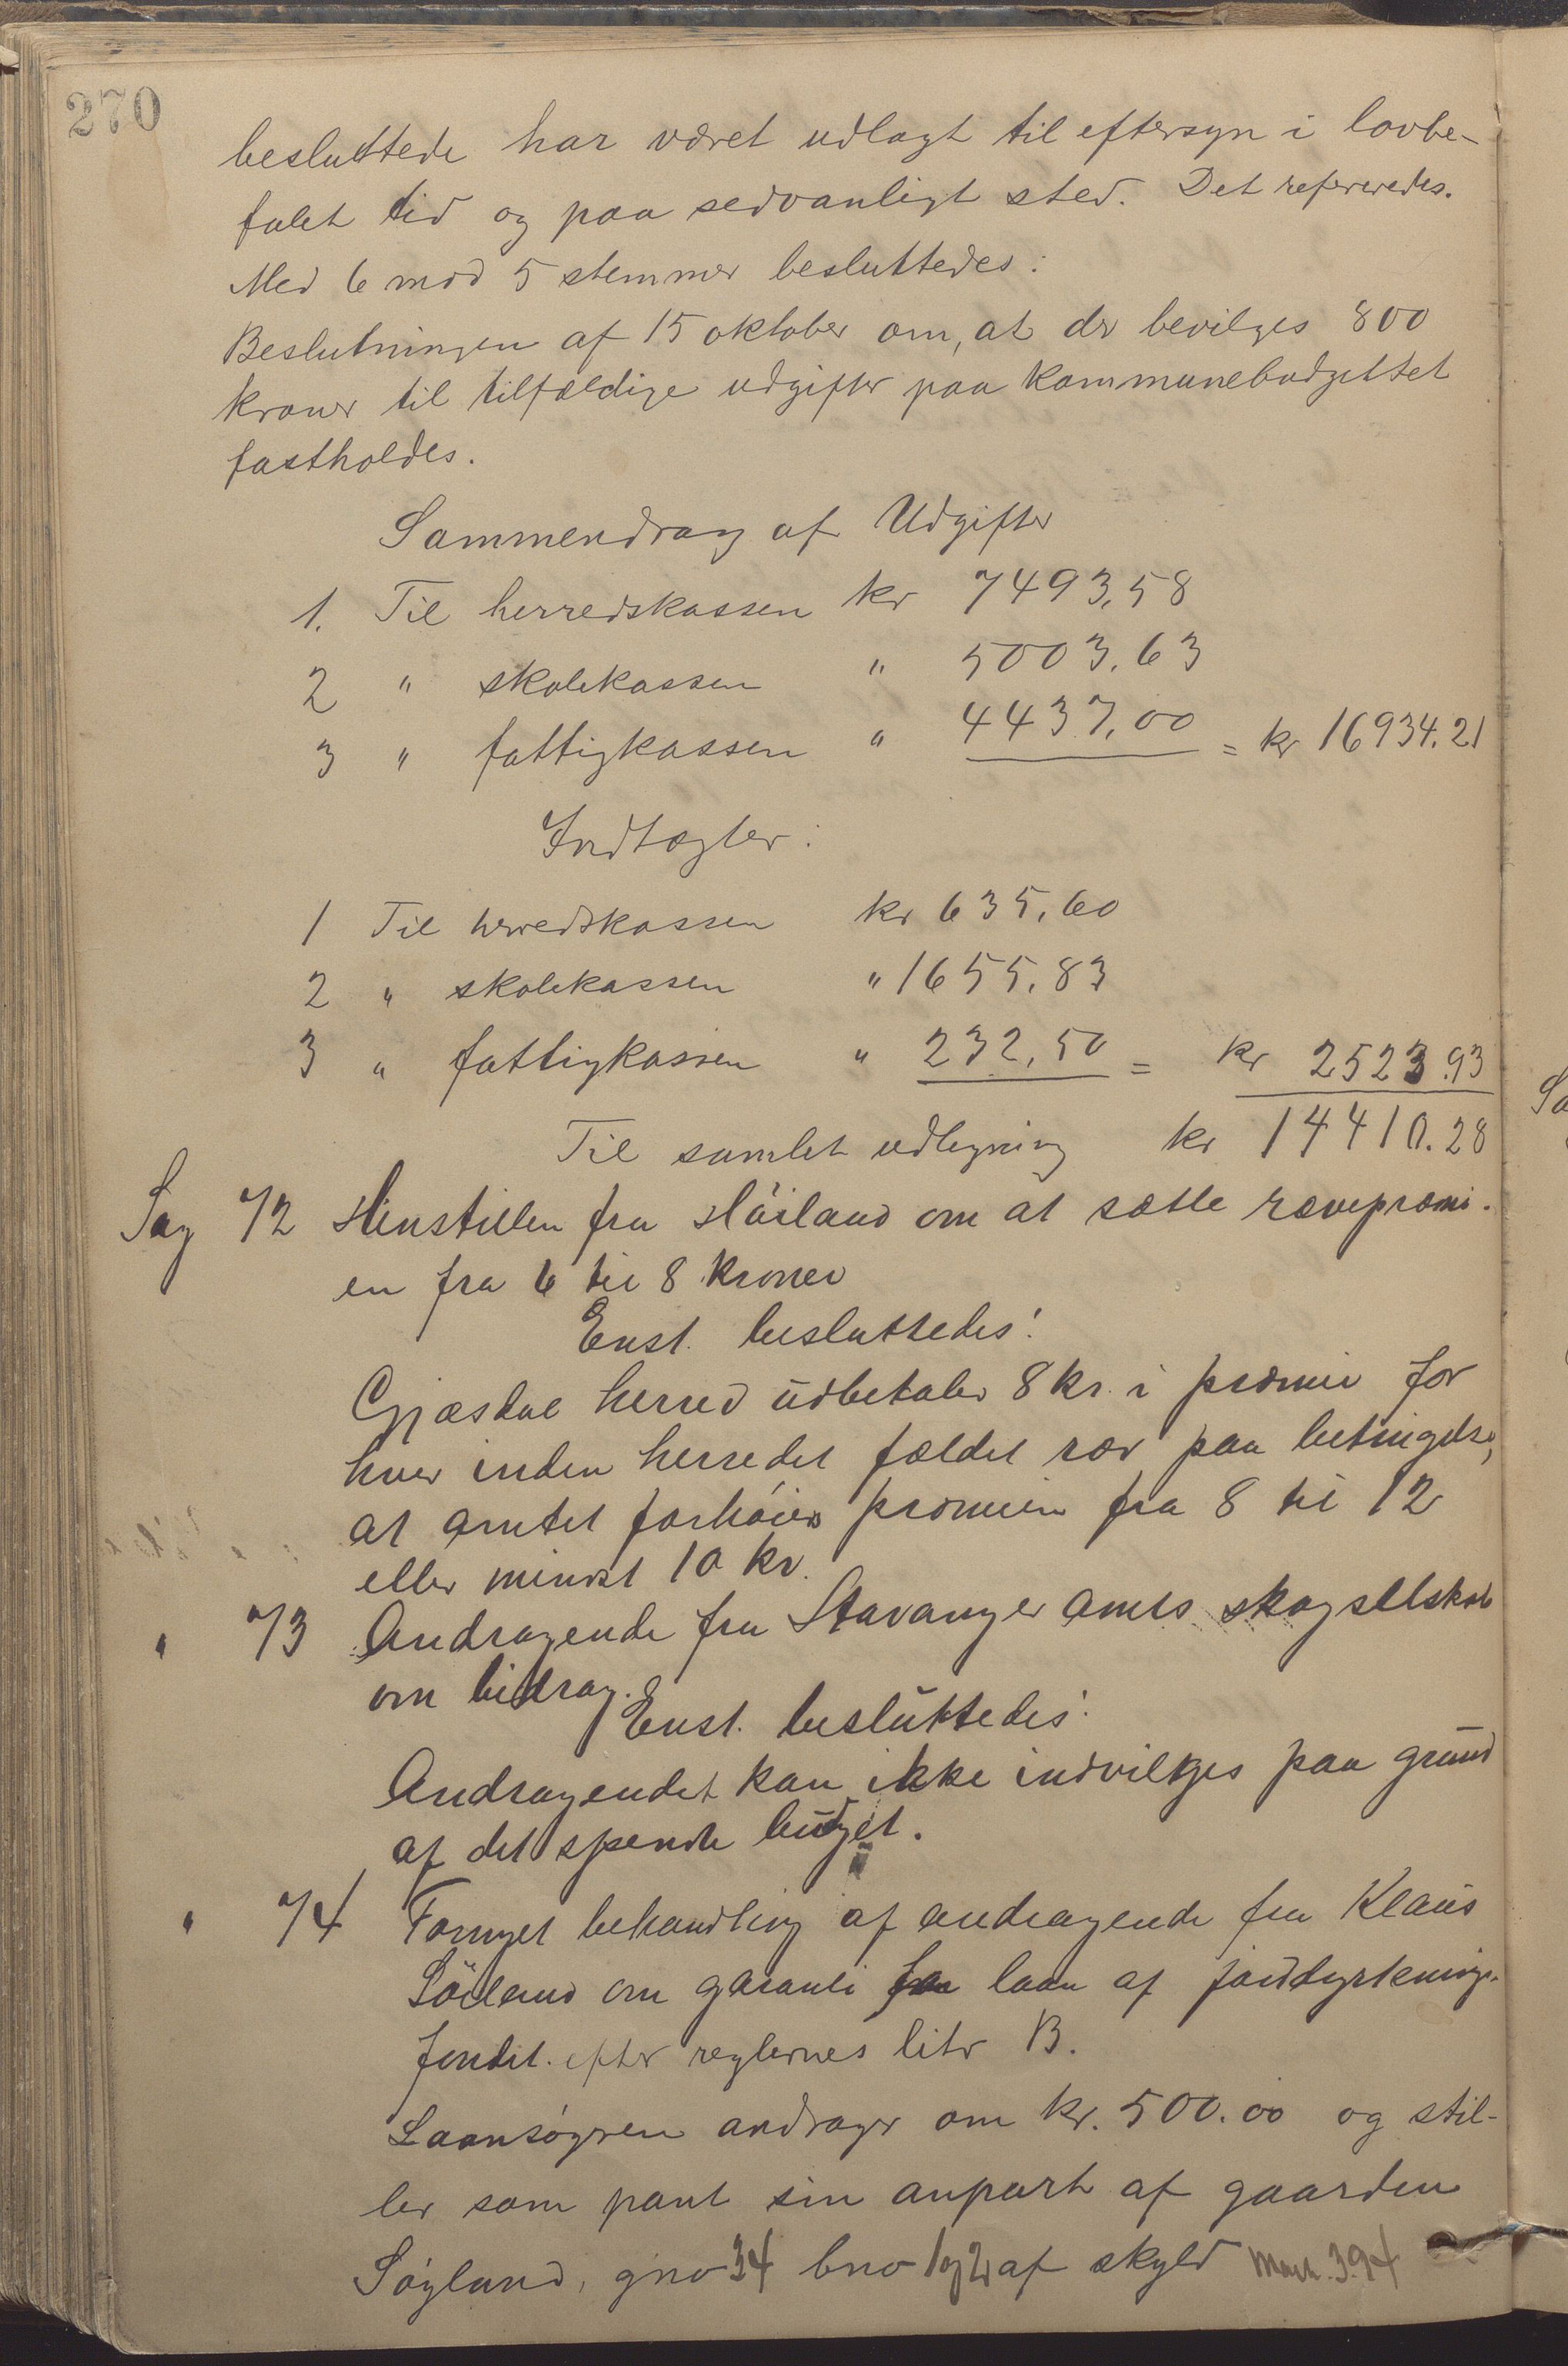 270
besluttede har været udlagt til eftersyn i lovbe-
falet tid og paa sedvanligt sted. Det refereredes.
Med 6 mod 5 stemmer besluttedes:
Beslutningen af 15 oktober om, at der bevilges 800
kroner til tilfældige udgifter paa kommunebudgettet
fastholdes.
Sammendrag af Udgifter
1. Til herredskassen kr 7493,58
2 " skolekassen " 5003.63
3 " fattigkassen " 4437,00 = kr 16934.21
Indtægter:
1 Til herredskassen kr 635,60
2 " skolekassen " 1655,83
3 " fattigkassen " 232,50 = kr 2523.93
Til samlet udligning kr 14410.28
Sag 72 Henstillen fra Höiland om at sætte rævepræmi-
en fra 6 til 8 kroner
Enst. besluttedes:
Gjæsdal herred udbetaler 8 kr. i præmie for
hver inden herredet fældet ræv paa betingelse,
at amtet forhöier præmien fra 8 til 12
eller mindst 10 kr.
" 73 Andragende fra Stavanger amts skogselskab
om bidrag.
Enst. besluttedes:
Andragendet kan ikke indvilges paa grund
af det spendte budget.
" 74 Fornyet behandling af andragende fra Klaus
Söiland om garanti for laan af jorddyrknings-
fondet efter reglernes litr B.
Laansøgeren andrager om kr. 500.00 og stil-
ler som pant sin anpart af gaarden
Søyland, gno 34 bno 1 og 2 af skyld Mark. 3.94